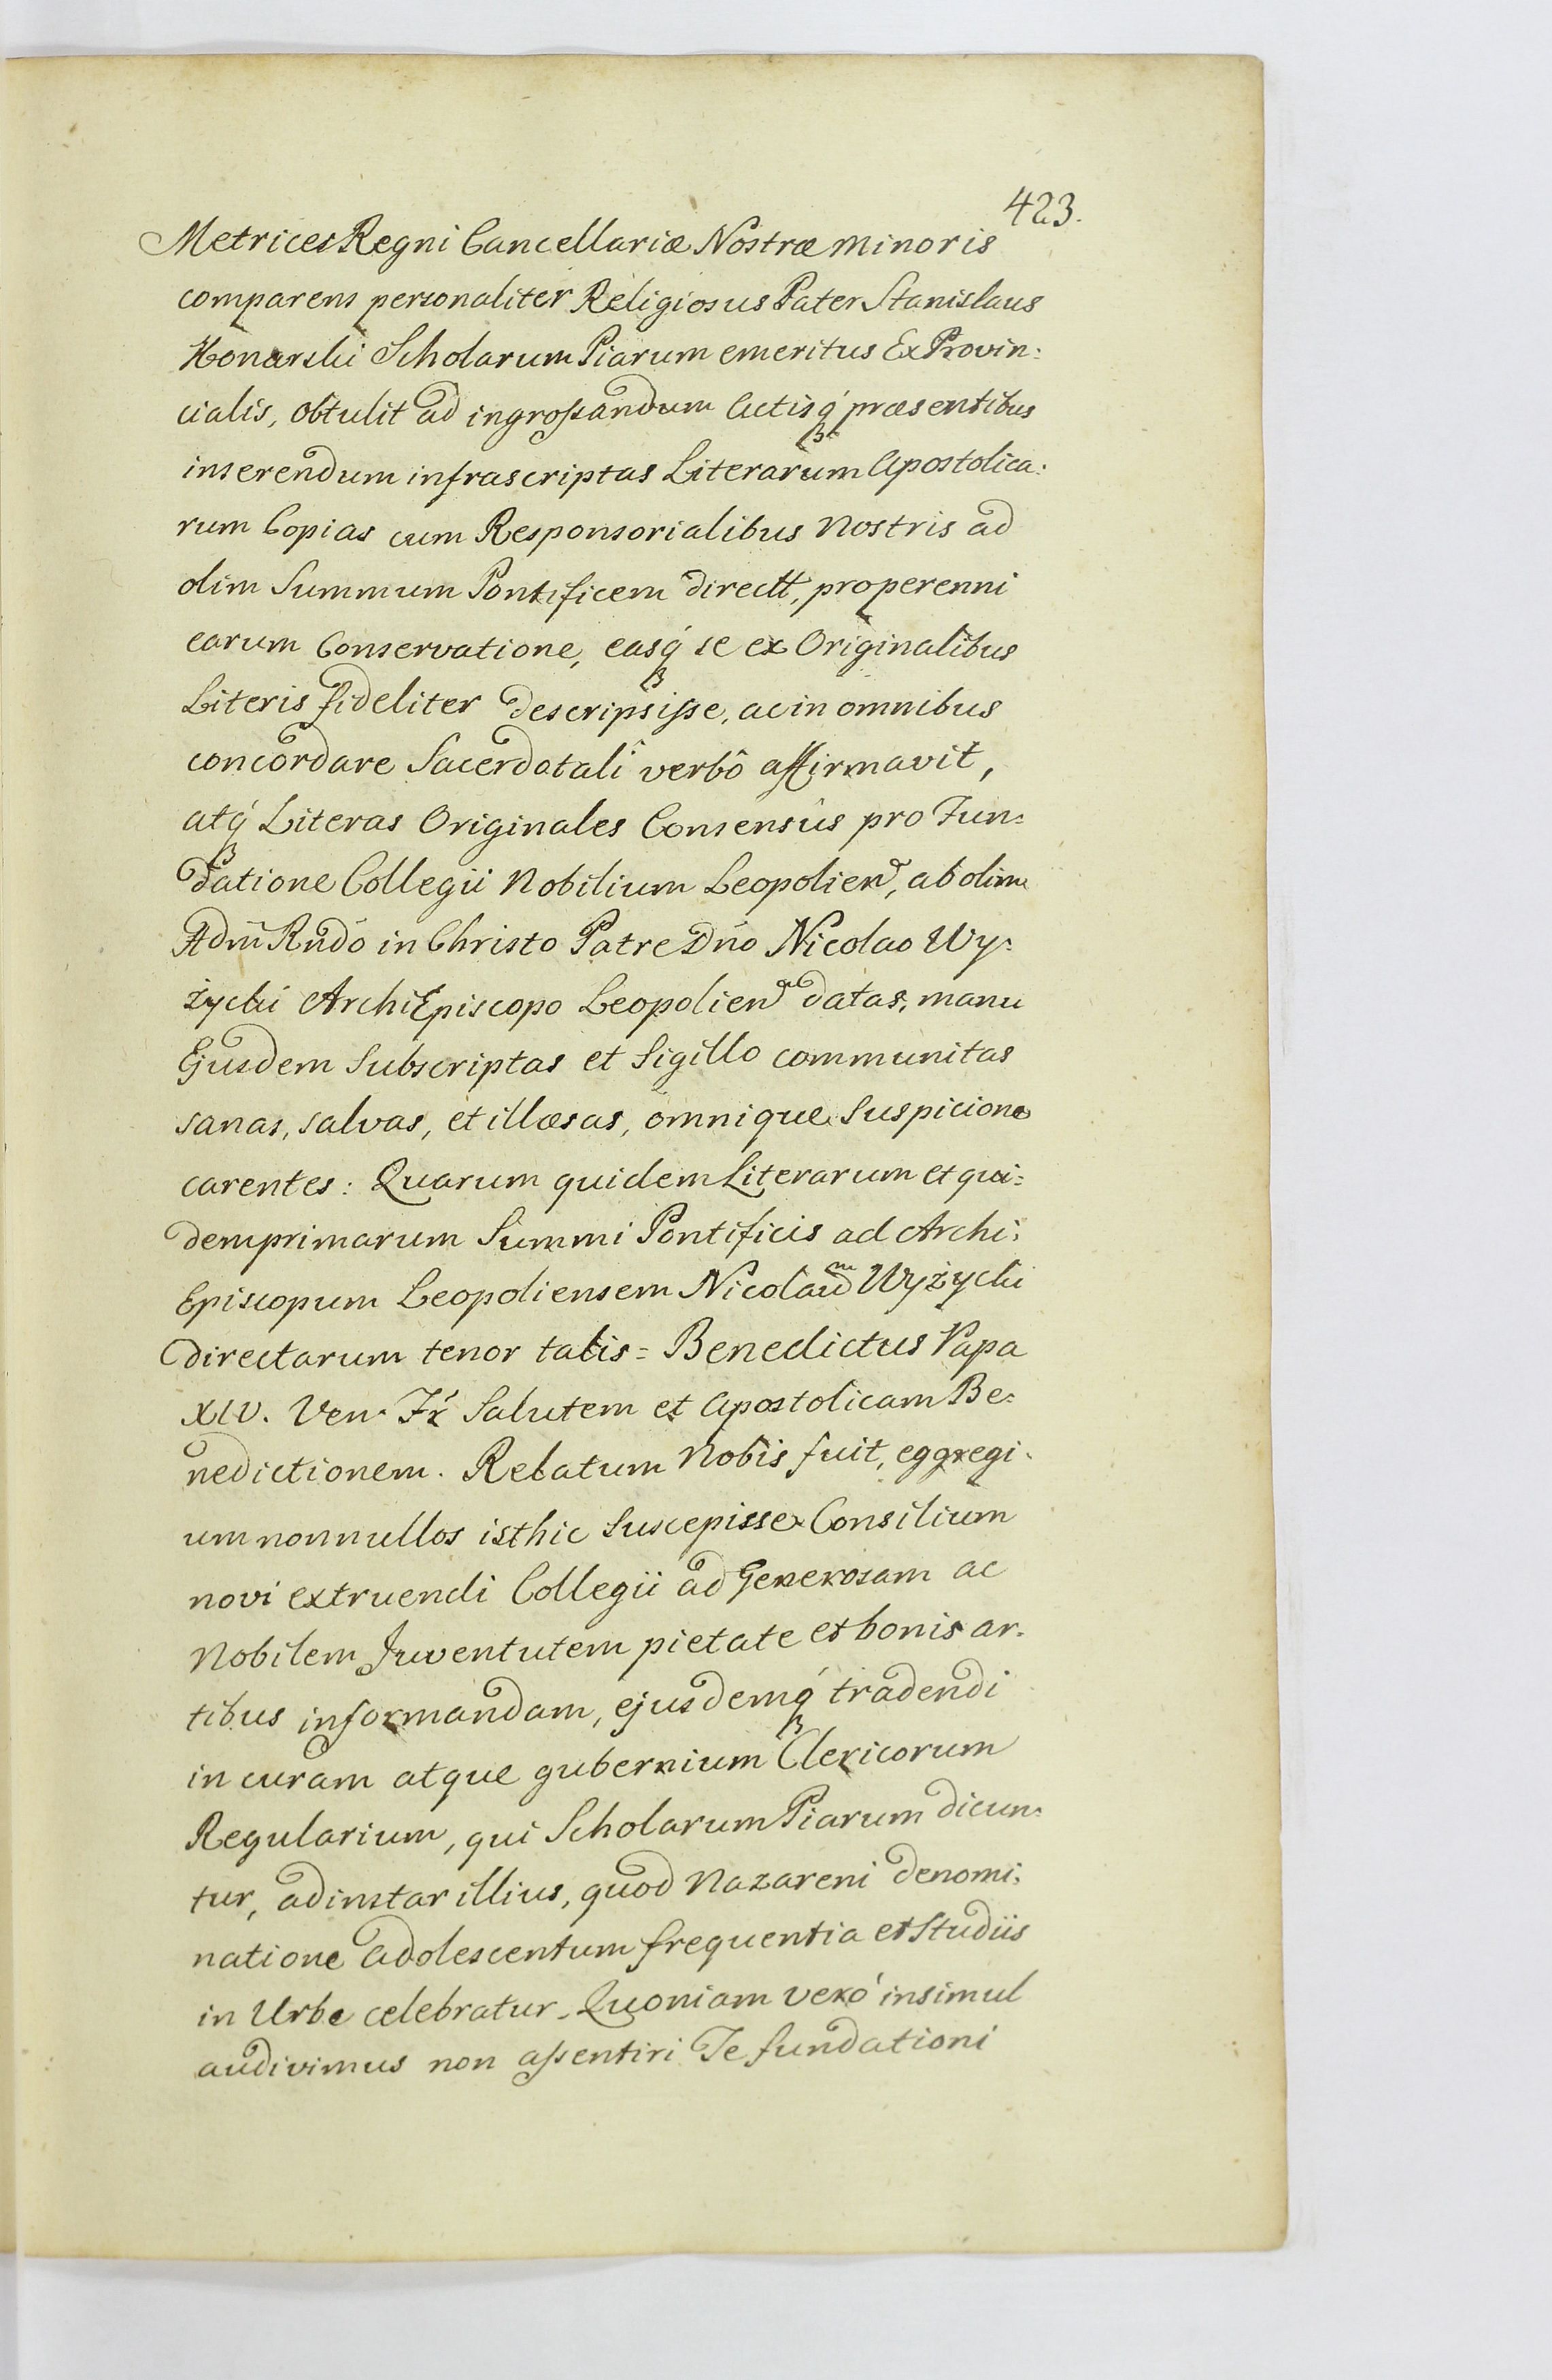 423.
Metrices Regni Cancellariæ Nostræ minoris
comparens personaliter Religiosus Pater Stanislaus
Konarski Scholarum Piarum emeritus Ex Provin:
cialis, obtulit ad ingrossandum Actisq́ præsentibus
inserendum infrascriptas Literarum Apostolica:
rum Copias cum Responsorialibus Nostris ad
olim Summum Pontificem directt, pro perenni
earum Conservatione, easq́ se ex Originalibus
Literis fideliter descripsisse, ac in omnibus
concordare Sacerdotali verbô affirmavit,
atq́ Literas Originales Consensûs pro Fun:
datione Collegii Nobilium Leopolien, ab olim
Adm̃ Rñdo in Christo Patre Dño Nicolao Wy:
życki ArchiEpiscopo Leopolien datas, manu
Ejusdem Subscriptas et Sigillo communitas
sanas, salvas, et illæsas, omnique Suspicione
carentes: Quarum quidem Literarum et qui:
dem primarum Summi Pontificis ad Archi:
Episcopum Leopoliensem Nicolaum Wyżycki
directarum tenor talis = Benedictus Papa
XIV. Ven. Fr̃ Salutem et Apostolicam Be:
nedictionem. Relatum Nobis fuit, eggregi:
um nonnullos isthic Suscepisse Consilium
novi extruendi Collegii ad Generosam ac
Nobilem Juventutem pietate et bonis ar:
tibus informandam, ejusdemq́ tradendi
in curam atque gubernium Clericorum
Regularium, qui Scholarum Piarum dicun:
tur, ad instar illius, quod Nazareni denomi:
natione adolescentum frequentia et Studiis
in Urbe celebratur. Quoniam veró insimul
audivimus non assentiri Te fundationi